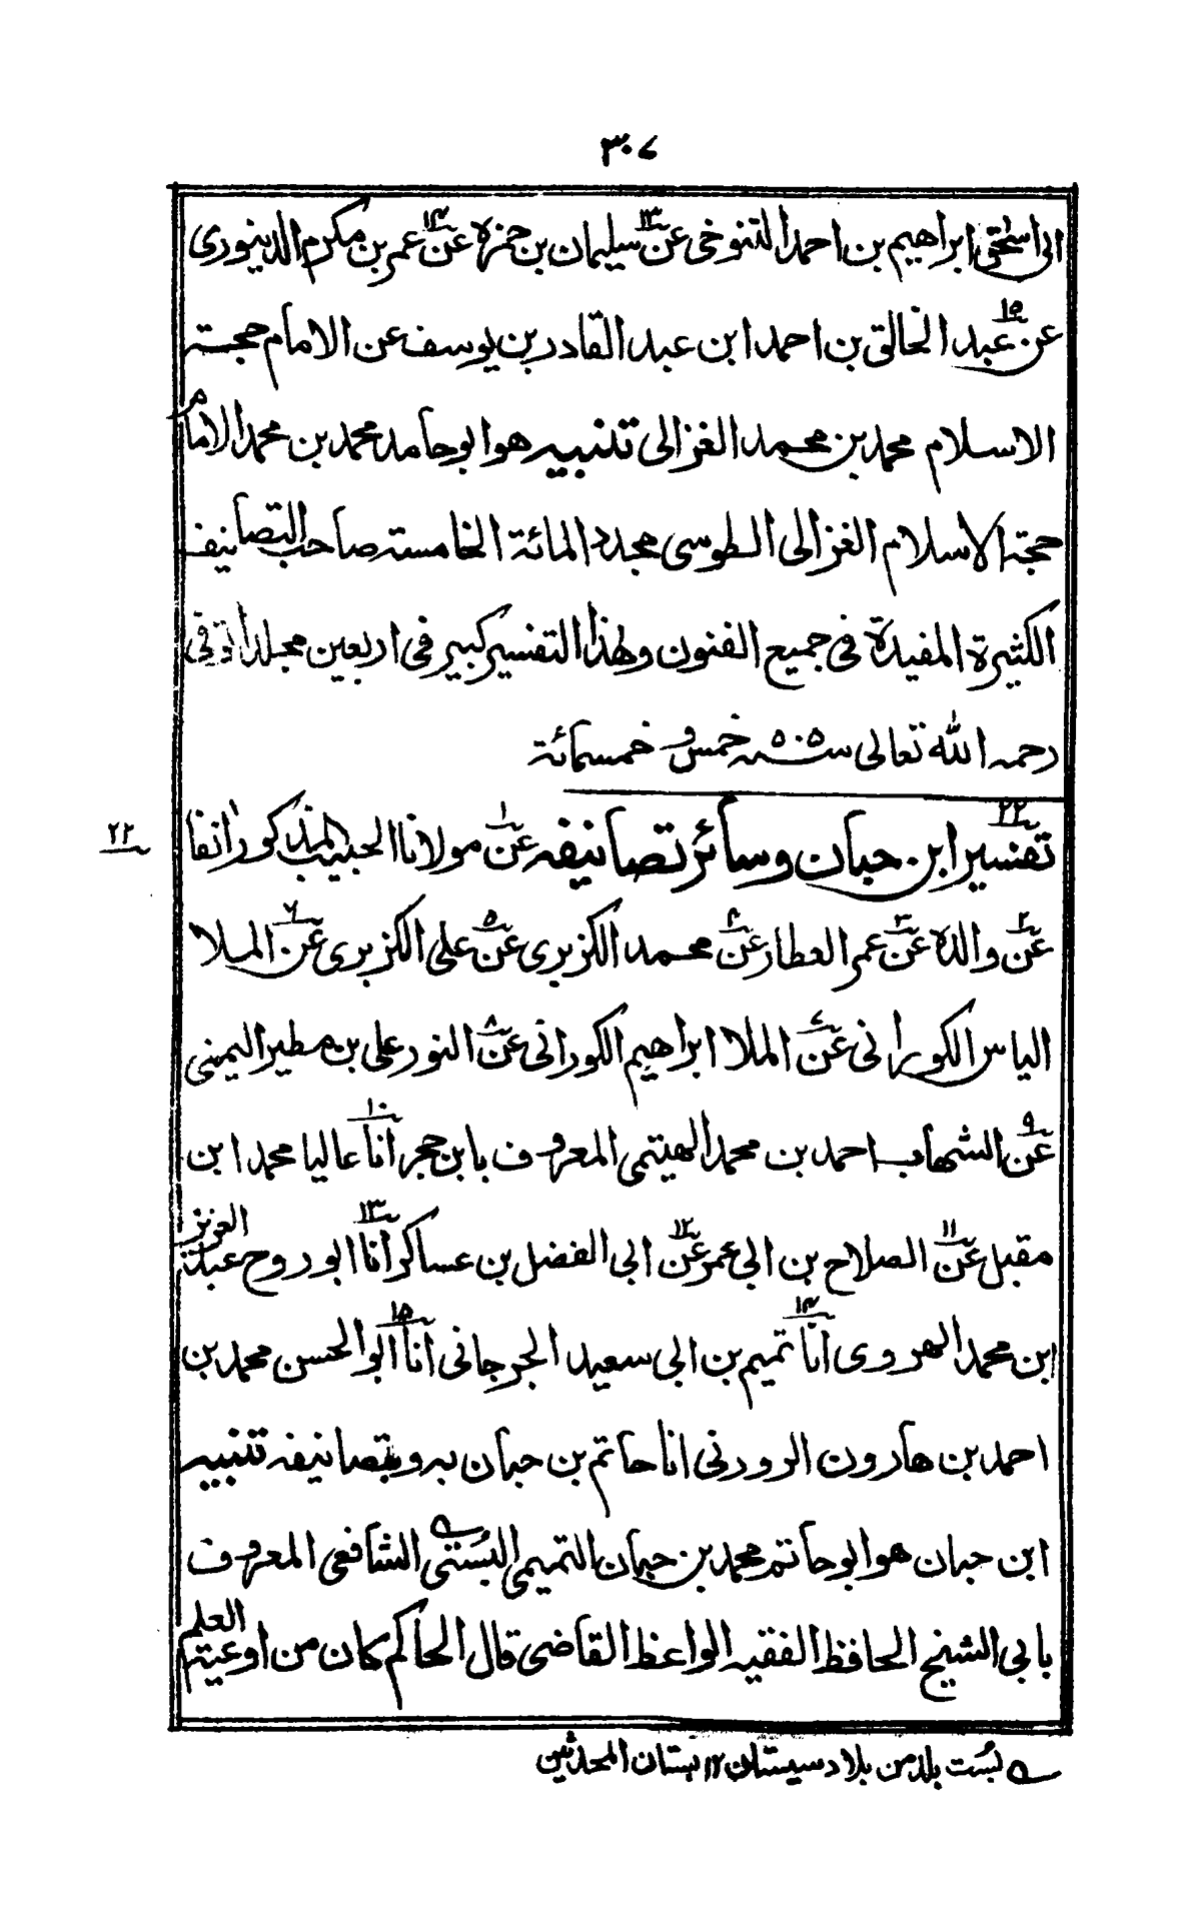 ٣٠٧
ابی اسحٰق ابراهیم بن احمد التنوخی عن ١٣ سلیمان بن حمزة عن ١٤ عمر بن مکرم الدینوری
عن ١٥ عبد الخالق بن احمد ابن عبد القادر بن یوسف عن الامام حجة
الاسلام محمد بن محمد الغزالی تنبیه هو ابو حامد محمد بن محمد الامام
حجة الاسلام الغزالی الطوسی مجدد المائة الخامسة صاحب التصانیف
الکثیرة المفیدة فی جمیع الفنون ولهذا التفسیر کبیر فی اربعین مجلدا توفی
رحمه الله تعالی سنه ٥٠٥ خمس و خمسمائة
٢٢ تفسیر ابن حبان وسائر تصانیفه عن ١ مولانا الحبیب المذکور انفا
٢٢
عن ٢ والده عن ٣ عمر العطار عن ٤ محمد الکزبری عن ٥ علی الکزبری عن ٦ الملا
الیاس الکورانی عن ٧ الملا ابراهیم الکورانی عن ٨ النور علی بن مطیر الیمنی
عن ٩ الشهاب احمد بن محمد الهیتمی المعروف بابن حجر انا ١٠ عالیا محمد ابن
مقبل عن ١١ الصلاح بن ابی عمر عن ١٢ ابی الفضل بن عساکر انا ١٣ ابو روح عبد العزیز
ابن محمد الهروی انا ١٤ تمیم بن ابی سعید الجرجانی انا ١٥ ابو الحسن محمد بن
احمد بن هارون الرودنی انا حاتم بن حبان به وبتصانیفه تنبیه
ابن حبان هو ابو حاتم محمد بن حبان التمیمی البُستی الشافعی المعروف
بابی الشیخ الحافظ الفقیه الواعظ القاضی قال الحاکم کان من اوعیة العلم
بُست بلد من بلاد سیستان ١٢ بستان المحدثین